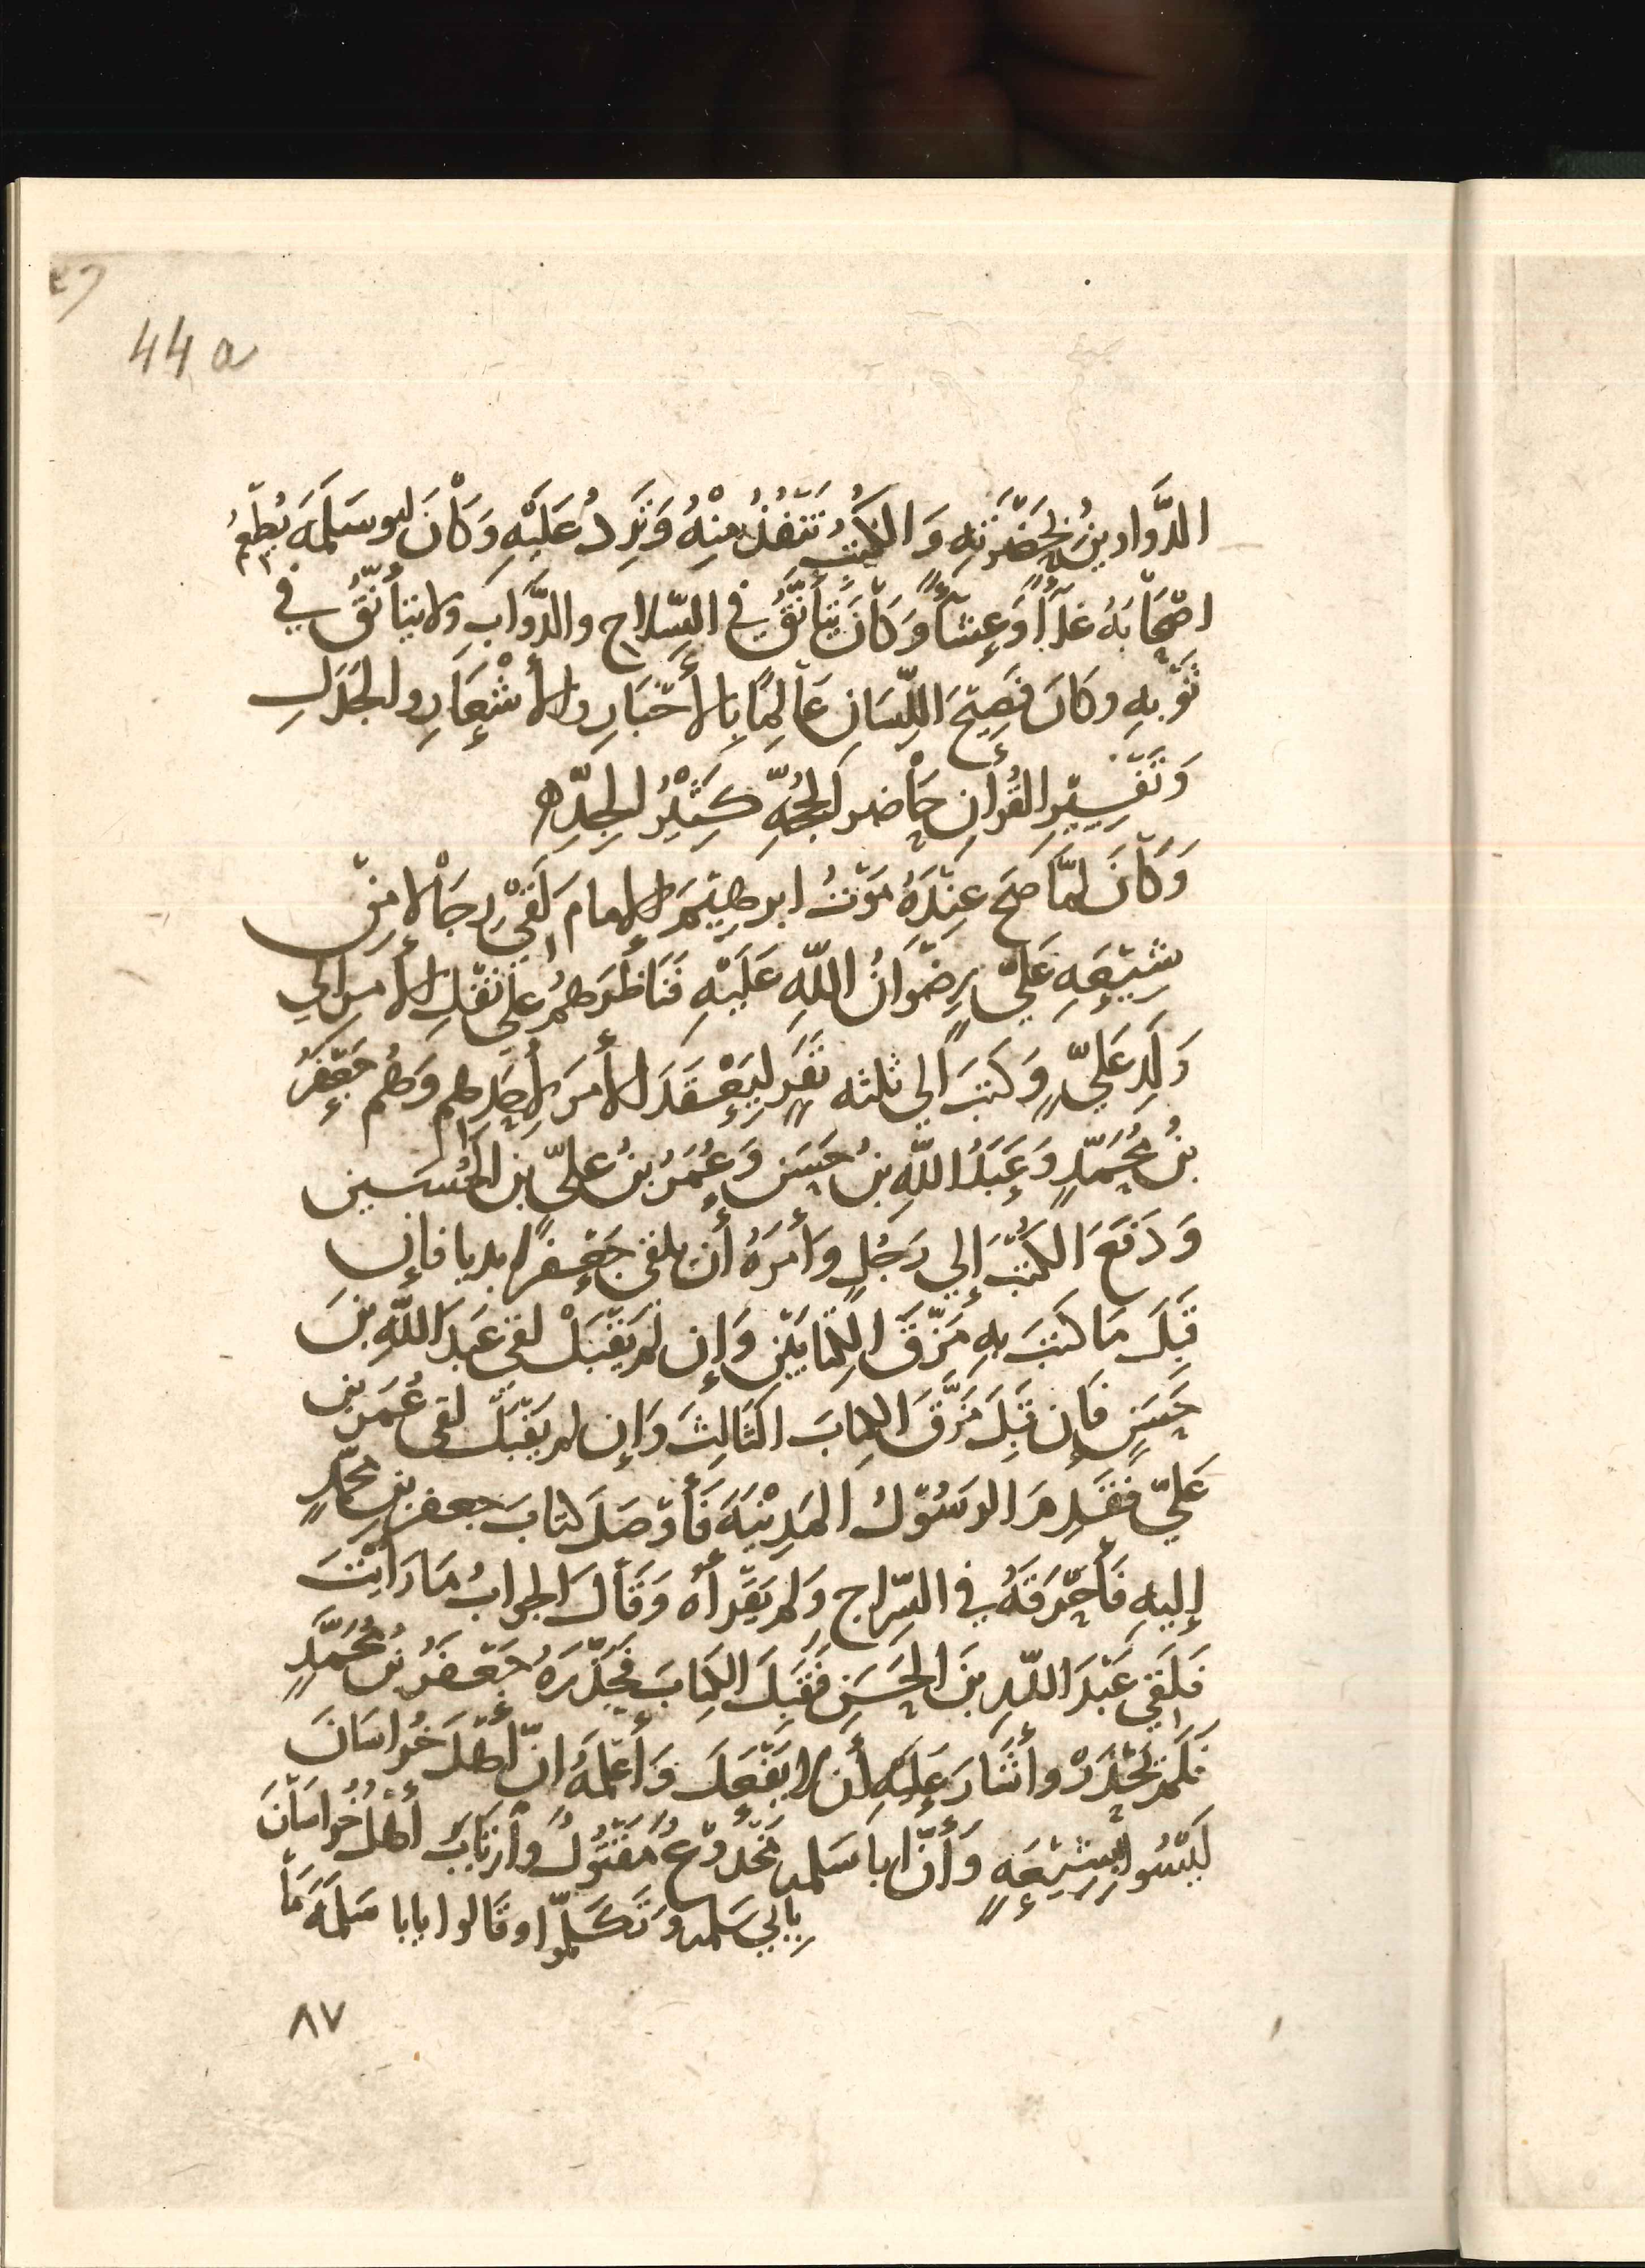 44 a
الدَّوَاوِينُ بِحَضْرَتِهِ وَالكُتُبُ تَنْفُذُ مِنْهُ وَتَرِدُ عَلَيْهِ وَكَانَ ابو سَلمَةَ يُطْعِمُ
اصْحَابَهُ غدَآءً وَعِشَآءً وَكَانَ يَتَأَنَّقُ في السِّلاحِ والدَّوَابِ ولا يَتَأَنَّقُ في
ثَوْبِهِ وكَانَ فَصِيْحَ اللِّسَانِ عَالِمًا بِالأَخبَارِ والأَشْعَارِ والجَدَلِ
وَتَفْسِيْرِ القُرأنِ حَاضر الحُجَّةِ كَثِيْرُ الجِدِّ
وَكَانَ لمَّا صَحَ عِنْدَهُ مَوْتُ ابرهِيْمَ الإمام لَقِيَ رِجَالا مِنْ
شِيْعَةِ عَليٍّ رِضْوَانُ اللّهِ عَلَيْهِ فَنَاظَرَهُمْ علي نَقْلِ الأَمرِ الي
وَلَدِ عَليٍّ وَكَتَبَ الي ثلثه نَفَرٍ لِيَعْقدَ الأَمرَ لأَحَدِهم وَهُم جَعْفَرُ
بنُ مُحَمَّدٍ وَعَبدُ اللَّهِ بنُ حَسَنٍ وَعُمَرُ بنُ عليّ بنِ الحُسَينِ
وَدَفَعَ الكُتُبَ إلي رَجُلٍ وأَمَرَهُ أَن يلقي جَعْفرًا بديا فإِن
قَبِلَ مَا كتبَ بهِ مَزَّقَ الكِتابَيْنِ وَإِن لم يَقْبَلْ لقي عَبدَ اللَّهِ بنَ
حَسَنٍ فَإِن قَبِلَ مَزَّقَ الكِتابَ الثَالِثَ وَإِن لم يَقْبَلْ لقي عُمَرَ بنَ
عَليّ فقَدِمَ الرسُوْلُ المَدِيْنَةَ فَأَوْصَلَ كتابَ جعفرِ بنِ محمّدٍ
إِليهِ فَأَحْرَقَهُ في السِّراجِ وَلم يَقْرأه وَقَالَ الجوابُ مَا رَأيْتَ
فَلَقِيَ عَبْدَ اللّهِ بنَ الحَسَنِ فَقَبِلَ الكِتابَ فَحَذَّرَهُ جَعفَرُ بنُ مُحَمَّدٍ
فلَم يَحْذَرْ وأَشَارَ عَلَيْهِ أَن لا يَفْعَلَ وَأَعْلمَهُ انّ أَهْلَ خُراسَانَ
لَيْسُوا بِشِيْعَةٍ وَأَنَّ أبا سَلمه مَخْدُوْعٌ مَقْتُوْلٌ وأرتَابَ أَهْلُ خُراسَانَ
بِابي سَلمه وَتَكَلَّمُوا وقَالوا يابا سَلمَةَ مَا
٨٧